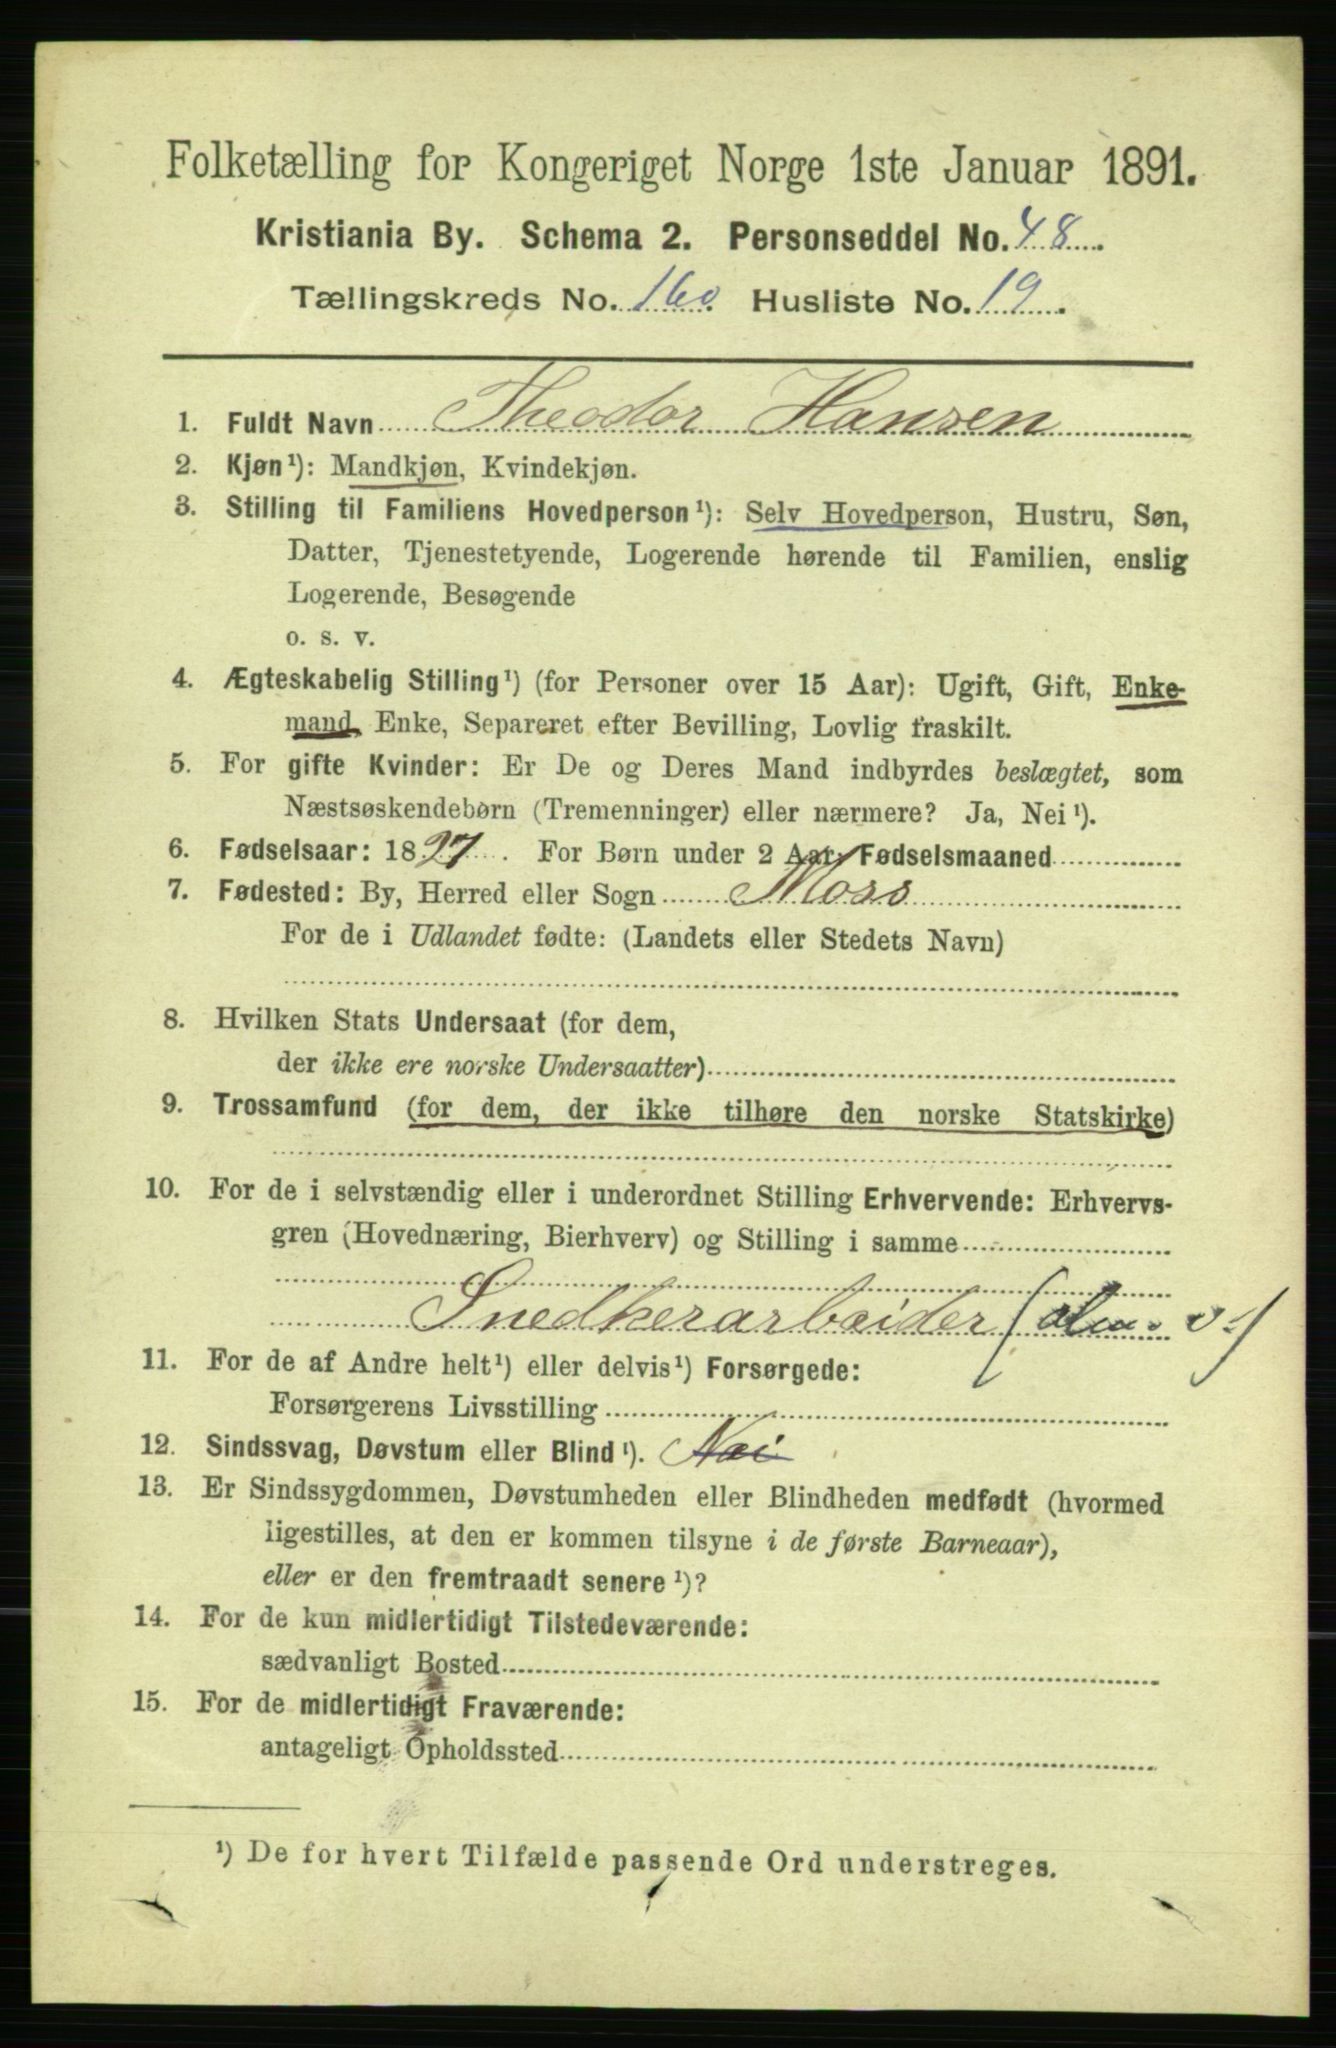 Folketælling for Kongeriget Norge 1ste Januar 1891.
Kristiania By. Schema 2. Personseddel No. 48.
Tællingskreds No. 160. Husliste No. 19.
1. Fuldt Navn Theodor Hansen
2. Kjøn¹): Mandkjøn, Kvindekjøn.
3. Stilling til Familiens Hovedperson¹): Selv Hovedperson, Hustru, Søn,
Datter, Tjenestetyende, Logerende hørende til Familien, enslig
Logerende, Besøgende
o. s. v.
4. Ægteskabelig Stilling¹) (for Personer over 15 Aar): Ugift, Gift, Enke-
mand, Enke, Separeret efter Bevilling, Lovlig fraskilt.
5. For gifte Kvinder: Er De og Deres Mand indbyrdes beslægtet, som
Næstsøskendebørn (Tremenninger) eller nærmere? Ja, Nei¹).
6. Fødselsaar: 1827. For Børn under 2 Aar: Fødselsmaaned
7. Fødested: By, Herred eller Sogn Moss
For de i Udlandet fødte: (Landets eller Stedets Navn)
8. Hvilken Stats Undersaat (for dem,
der ikke ere norske Undersaatter)
9. Trossamfund (for dem, der ikke tilhøre den norske Statskirke)
10. For de i selvstændig eller i underordnet Stilling Erhvervende: Erhvervs-
gren (Hovednæring, Bierhverv) og Stilling i samme
Snedkerarbeider
11. For de af Andre helt¹) eller delvis¹) Forsørgede:
Forsørgerens Livsstilling
12. Sindssvag, Døvstum eller Blind¹). Nei
13. Er Sindssygdommen, Døvstumheden eller Blindheden medfødt (hvormed
ligestilles, at den er kommen tilsyne i de første Barneaar),
eller er den fremtraadt senere¹)?
14. For de kun midlertidigt Tilstedeværende:
sædvanligt Bosted
15. For de midlertidigt Fraværende:
antageligt Opholdssted
¹) De for hvert Tilfælde passende Ord understreges.